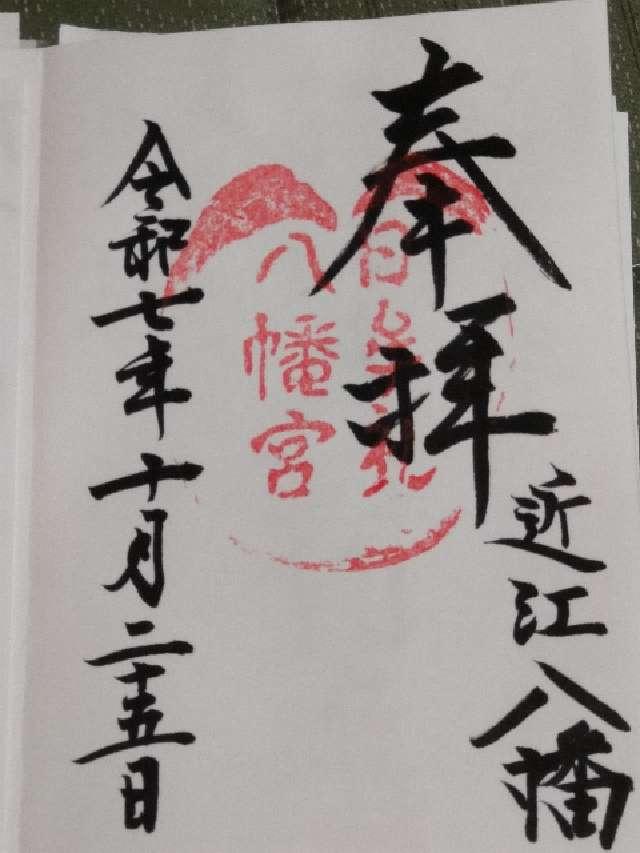 奉拝
近江八幡
日牟礼
八幡宮
令和七年十月二十五日